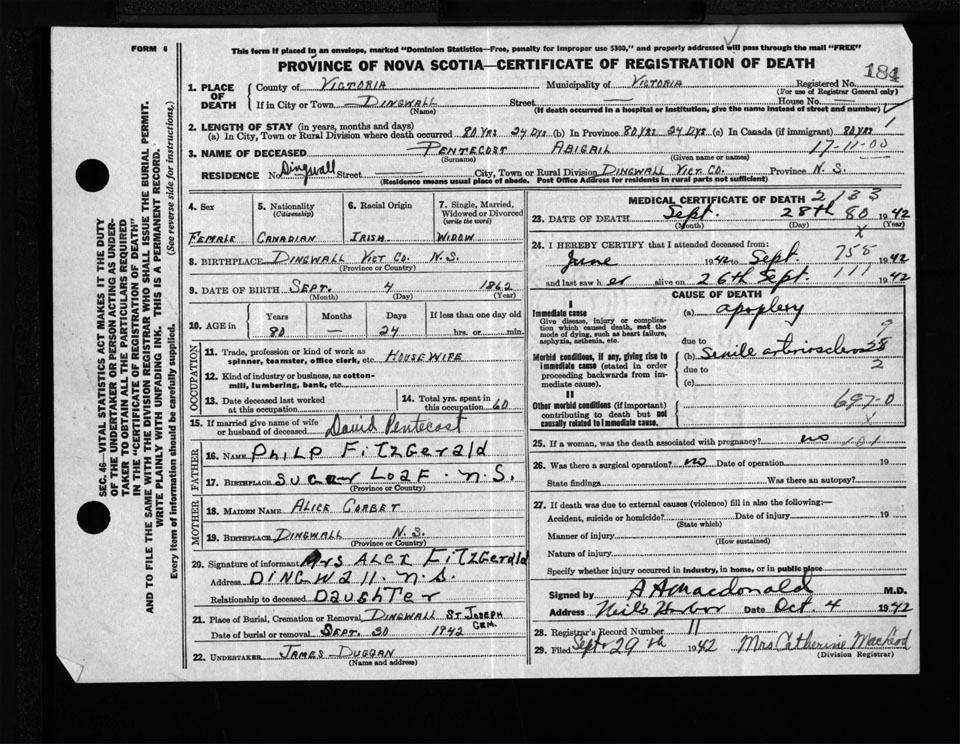 FORM 6
This form if placed in an envelope, marked "Dominion Statistics—Free, penalty for improper use $300," and properly addressed will pass through the mail "FREE"
PROVINCE OF NOVA SCOTIA—CERTIFICATE OF REGISTRATION OF DEATH
184
1. PLACE OF DEATH
County of VICTORIA Municipality of VICTORIA Registered No.
(For use of Registrar General only)
If in City or Town DINGWALL Street House No.
(Name) (If death occurred in a hospital or institution, give the name instead of street and number)
2. LENGTH OF STAY (in years, months and days)
(a) In City, Town or Rural Division where death occurred 80 YRS 24 DYS (b) In Province 80 YRS 24 DYS (c) In Canada (if immigrant) 80 YRS
3. NAME OF DECEASED PENTECOST ABIGAIL 17-11-00
(Surname) (Given name or names)
RESIDENCE No. Dingwall Street City, Town or Rural Division DINGWALL VICT. CO. Province N.S.
(Residence means usual place of abode. Post Office Address for residents in rural parts not sufficient)
SEC. 46—VITAL STATISTICS ACT MAKES IT THE DUTY OF THE UNDERTAKER OR PERSON ACTING AS UNDERTAKER TO OBTAIN ALL THE PARTICULARS REQUIRED IN THE "CERTIFICATE OF REGISTRATION OF DEATH" AND TO FILE THE SAME WITH THE DIVISION REGISTRAR WHO SHALL ISSUE THE BURIAL PERMIT.
WRITE PLAINLY WITH UNFADING INK. THIS IS A PERMANENT RECORD.
Every item of information should be carefully supplied. (See reverse side for instructions.)
4. Sex 5. Nationality (Citizenship) 6. Racial Origin 7. Single, Married, Widowed or Divorced (write the word)
FEMALE CANADIAN IRISH WIDOW
8. BIRTHPLACE DINGWALL VICT CO. N.S.
(Province or Country)
9. DATE OF BIRTH SEPT. 4 1862
(Month) (Day) (Year)
10. AGE in Years Months Days If less than one day old
80 — 24 hrs. or min.
OCCUPATION
11. Trade, profession or kind of work as spinner, teamster, office clerk, etc. HOUSEWIFE
12. Kind of industry or business, as cotton-mill, lumbering, bank, etc.
13. Date deceased last worked at this occupation 14. Total yrs. spent in this occupation 60
15. If married give name of wife or husband of deceased David Pentecost
FATHER
16. NAME PHILP FITZGERALD
17. BIRTHPLACE SUGAR LOAF - N.S.
(Province or Country)
MOTHER
18. MAIDEN NAME ALICE CORBET
19. BIRTHPLACE DINGWALL N.S.
(Province or Country)
20. Signature of informant Mrs ALEX FITZGERALD
Address DINGWALL. N.S.
Relationship to deceased DAUGHTER
21. Place of Burial, Cremation or Removal DINGWALL ST JOSEPH CEM.
Date of burial or removal SEPT. 30 1942
22. UNDERTAKER JAMES DUGGAN
(Name and address)
MEDICAL CERTIFICATE OF DEATH 2133
23. DATE OF DEATH Sept. 28th 80 1942
(Month) (Day) (Year)
X
24. I HEREBY CERTIFY that I attended deceased from:
June 1942 to Sept. 758 1942
and last saw her alive on 26th Sept. 111 1942
CAUSE OF DEATH
I
Immediate cause (a) apoplexy
Give disease, injury or complication which caused death, not the mode of dying, such as heart failure, asphyxia, asthenia, etc.
due to
Morbid conditions, if any, giving rise to immediate cause (stated in order proceeding backwards from immediate cause).
(b) Senile arteriosclerosis
due to
(c)
II
Other morbid conditions (if important) contributing to death but not causally related to immediate cause.
697-0
X
25. If a woman, was the death associated with pregnancy? no 101
26. Was there a surgical operation? no Date of operation 19
State findings Was there an autopsy?
27. If death was due to external causes (violence) fill in also the following:—
Accident, suicide or homicide? Date of injury 19
(State which)
Manner of injury
(How sustained)
Nature of injury
Specify whether injury occurred in industry, in home, or in public place
Signed by A A Macdonald M.D.
Address Neils Harbor Date Oct. 4 1942
28. Registrar's Record Number 11
29. Filed Sept 29th 1942 Mrs Catherine MacLeod
(Division Registrar)